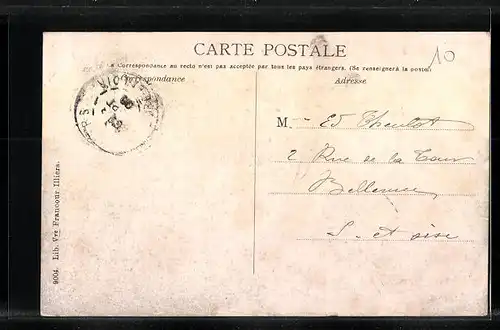 CARTE POSTALE
10
La Correspondance au recto n'est pas acceptée par tous les pays étrangers. (Se renseignera la poste)
Correspondance
Adresse
M. Ed Thoulot
2 Rue de la Tour
Bellevue
S. et oise
9004. Lib. Vve Francour Illiers.